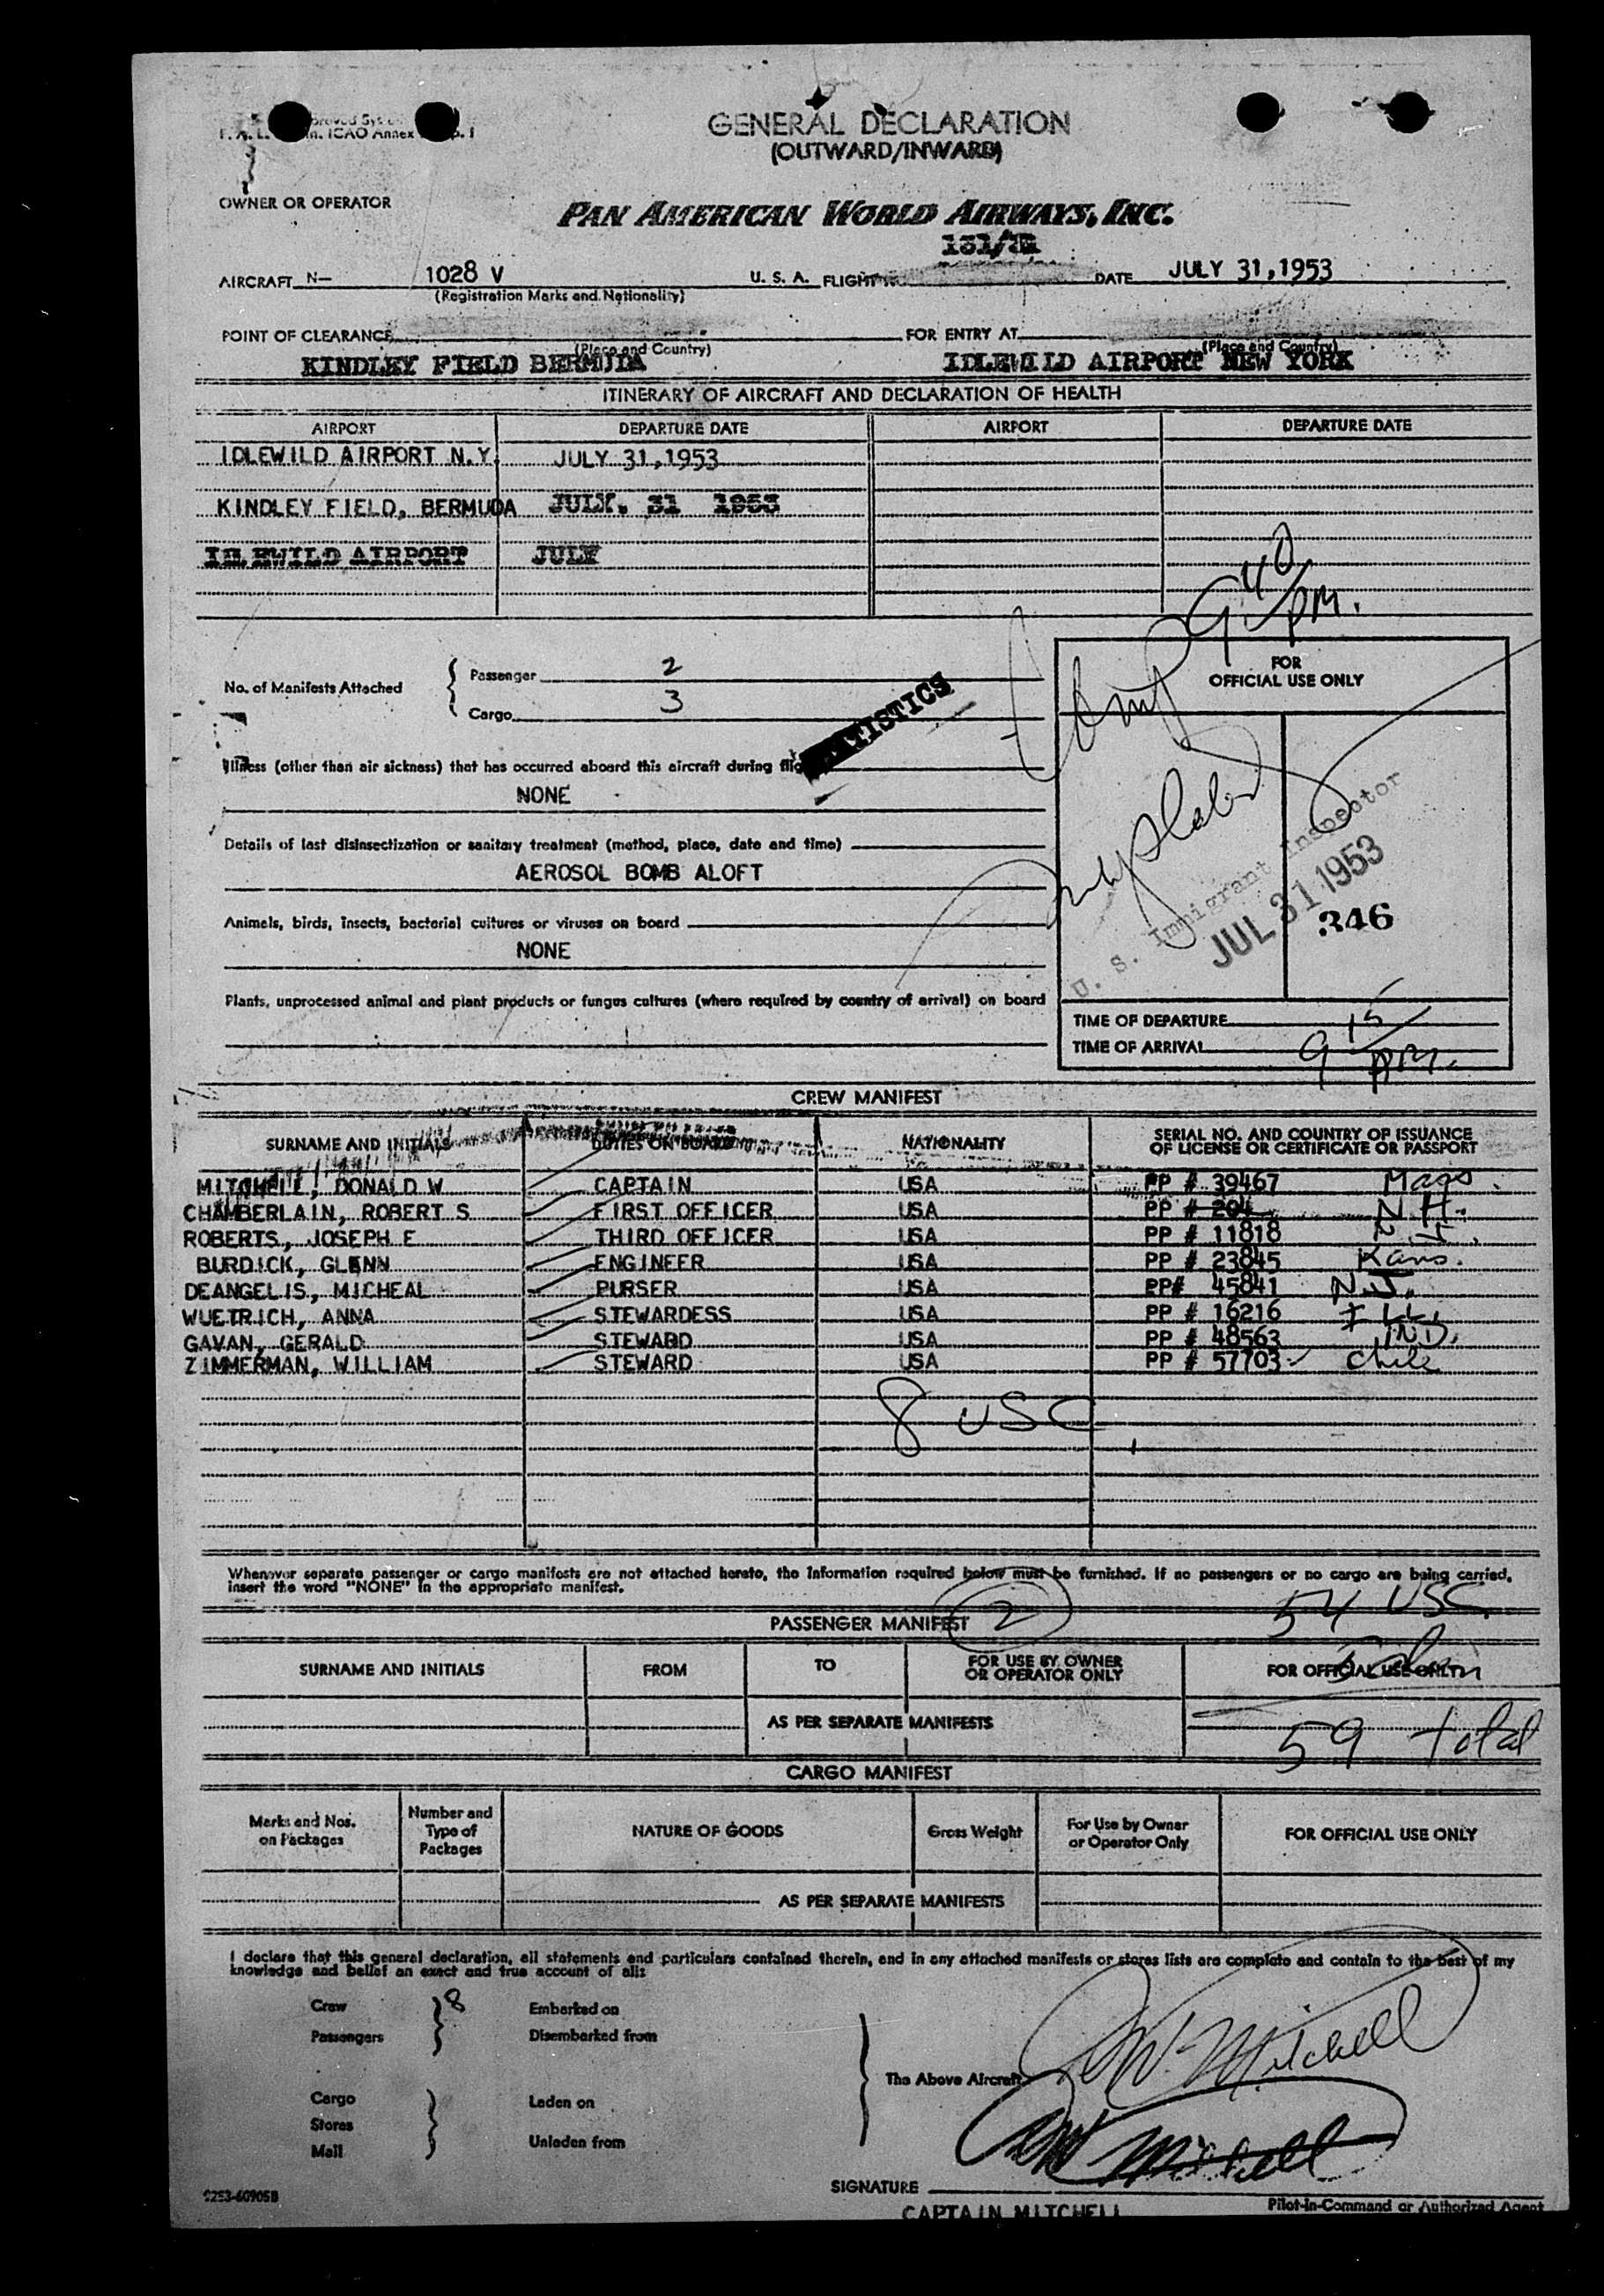 GENERAL DECLARATION
(OUTWARD/INWARD)
OWNER OR OPERATOR
PAN AMERICAN WORLD AIRWAYS, INC.
AIRCRAFT N— 1028 V U. S. A. FLIGHT DATE JULY 31,1953
(Registration Marks and Nationality)
POINT OF CLEARANCE FOR ENTRY AT
(Place and Country) (Place and Country)
KINDLEY FIELD BERMUDA IDLEWILD AIRPORT NEW YORK
ITINERARY OF AIRCRAFT AND DECLARATION OF HEALTH
AIRPORT DEPARTURE DATE AIRPORT DEPARTURE DATE
IDLEWILD AIRPORT N.Y. JULY 31,1953
KINDLEY FIELD, BERMUDA JULY. 31 1953
IDLEWILD AIRPORT JULY
9 40 PM.
No. of Manifests Attached
Passenger 2
Cargo 3
FOR
OFFICIAL USE ONLY
Illness (other than air sickness) that has occurred aboard this aircraft during
NONE
Details of last disinsectization or sanitary treatment (method, place, date and time)
AEROSOL BOMB ALOFT
Animals, birds, insects, bacterial cultures or viruses on board
NONE
U. S. Immigrant Inspector
JUL 31 1953
346
Plants, unprocessed animal and plant products or fungus cultures (where required by country of arrival) on board
TIME OF DEPARTURE
TIME OF ARRIVAL 9 15 PM.
CREW MANIFEST
SURNAME AND INITIALS DUTIES ON BOARD NATIONALITY SERIAL NO. AND COUNTRY OF ISSUANCE
OF LICENSE OR CERTIFICATE OR PASSPORT
MITCHELL, DONALD W CAPTAIN USA PP # 39467 Mass.
CHAMBERLAIN, ROBERT S FIRST OFFICER USA PP # 204 N.H.
ROBERTS, JOSEPH E THIRD OFFICER USA PP # 11818 N.J.
BURDICK, GLENN ENGINEER USA PP # 23845 Kans.
DEANGELIS, MICHEAL PURSER USA PP# 45841 N.J.
WUETRICH, ANNA STEWARDESS USA PP # 16216 ILL.
GAVAN, GERALD STEWARD USA PP # 48563 IND.
ZIMMERMAN, WILLIAM STEWARD USA PP # 57703 Chile
8 USC
Whenever separate passenger or cargo manifests are not attached hereto, the information required below must be furnished. If no passengers or no cargo are being carried,
insert the word "NONE" in the appropriate manifest.
54 USC
PASSENGER MANIFEST 2
SURNAME AND INITIALS FROM TO FOR USE BY OWNER
OR OPERATOR ONLY FOR OFFICIAL USE ONLY
AS PER SEPARATE MANIFESTS
59 total
CARGO MANIFEST
Marks and Nos.
on Packages Number and
Type of
Packages NATURE OF GOODS Gross Weight For Use by Owner
or Operator Only FOR OFFICIAL USE ONLY
AS PER SEPARATE MANIFESTS
I declare that this general declaration, all statements and particulars contained therein, and in any attached manifests or stores lists are complete and contain to the best of my
knowledge and belief an exact and true account of all:
Crew 8 Embarked on
Passengers Disembarked from
The Above Aircraft
Cargo Laden on
Stores
Mail Unladen from
DW Mitchell
DW Mitchell
SIGNATURE
CAPTAIN MITCHELL Pilot-in-Command or Authorized Agent